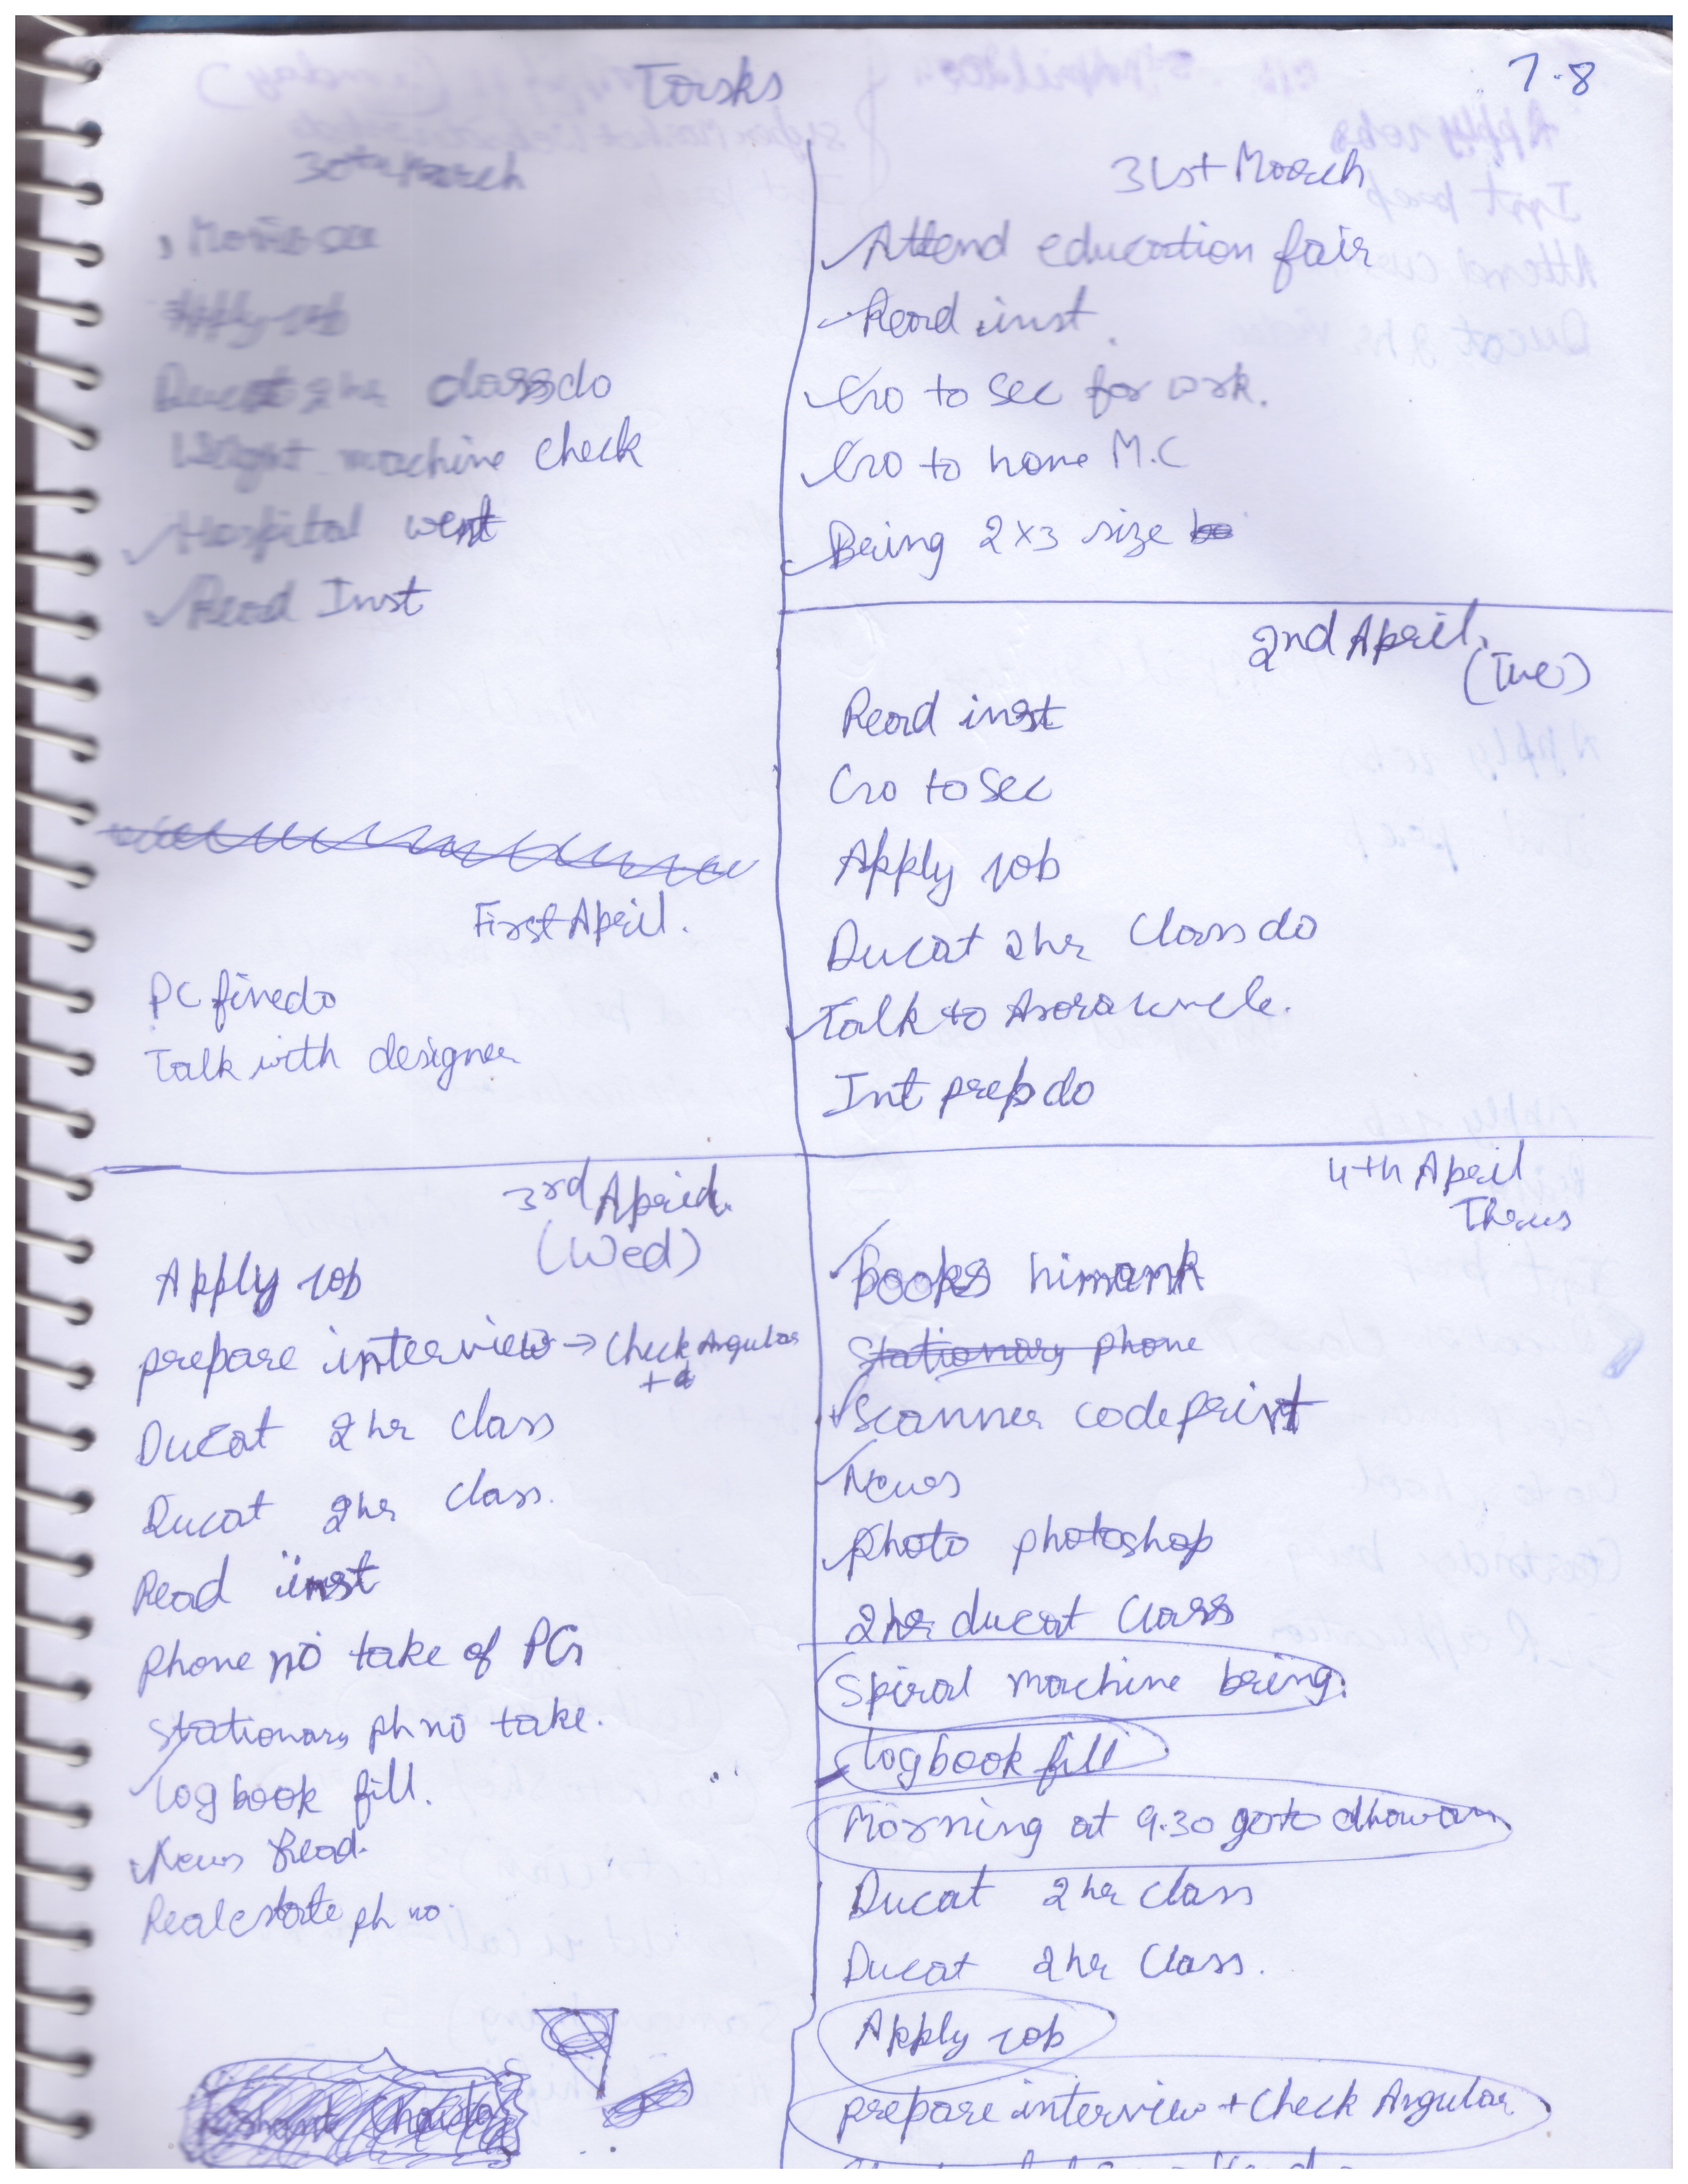 Tasks
7.8
30th March
Movie see
Apply job
Ducat 2hr class do
Weight machine check
Hospital went
Read Inst
31st March
Attend education fair
Read inst.
Go to sec for work.
Go to home M.C
Bring 2x3 size
2nd April.
(Tue)
Read inst
Go to sec
Apply job
Ducat 2hr class do
Talk to Arora uncle.
Int prep do
First April.
PC fine do
Talk with designer
3rd April.
(Wed)
Apply job
prepare interview → Check Angular
Ducat 2hr class
Ducat 2hr class.
Read inst
phone no take of PG
Stationary ph no take.
log book fill.
News Read.
Real estate ph no.
4th April
Thrus
books himank
Stationary phone
Scanner code print
News
photo photoshop
2hr ducat class
Spiral machine bring.
logbook fill
Morning at 9.30 go to dhawan
Ducat 2hr class
Ducat 2hr class.
Apply job
prepare interview + Check Angular